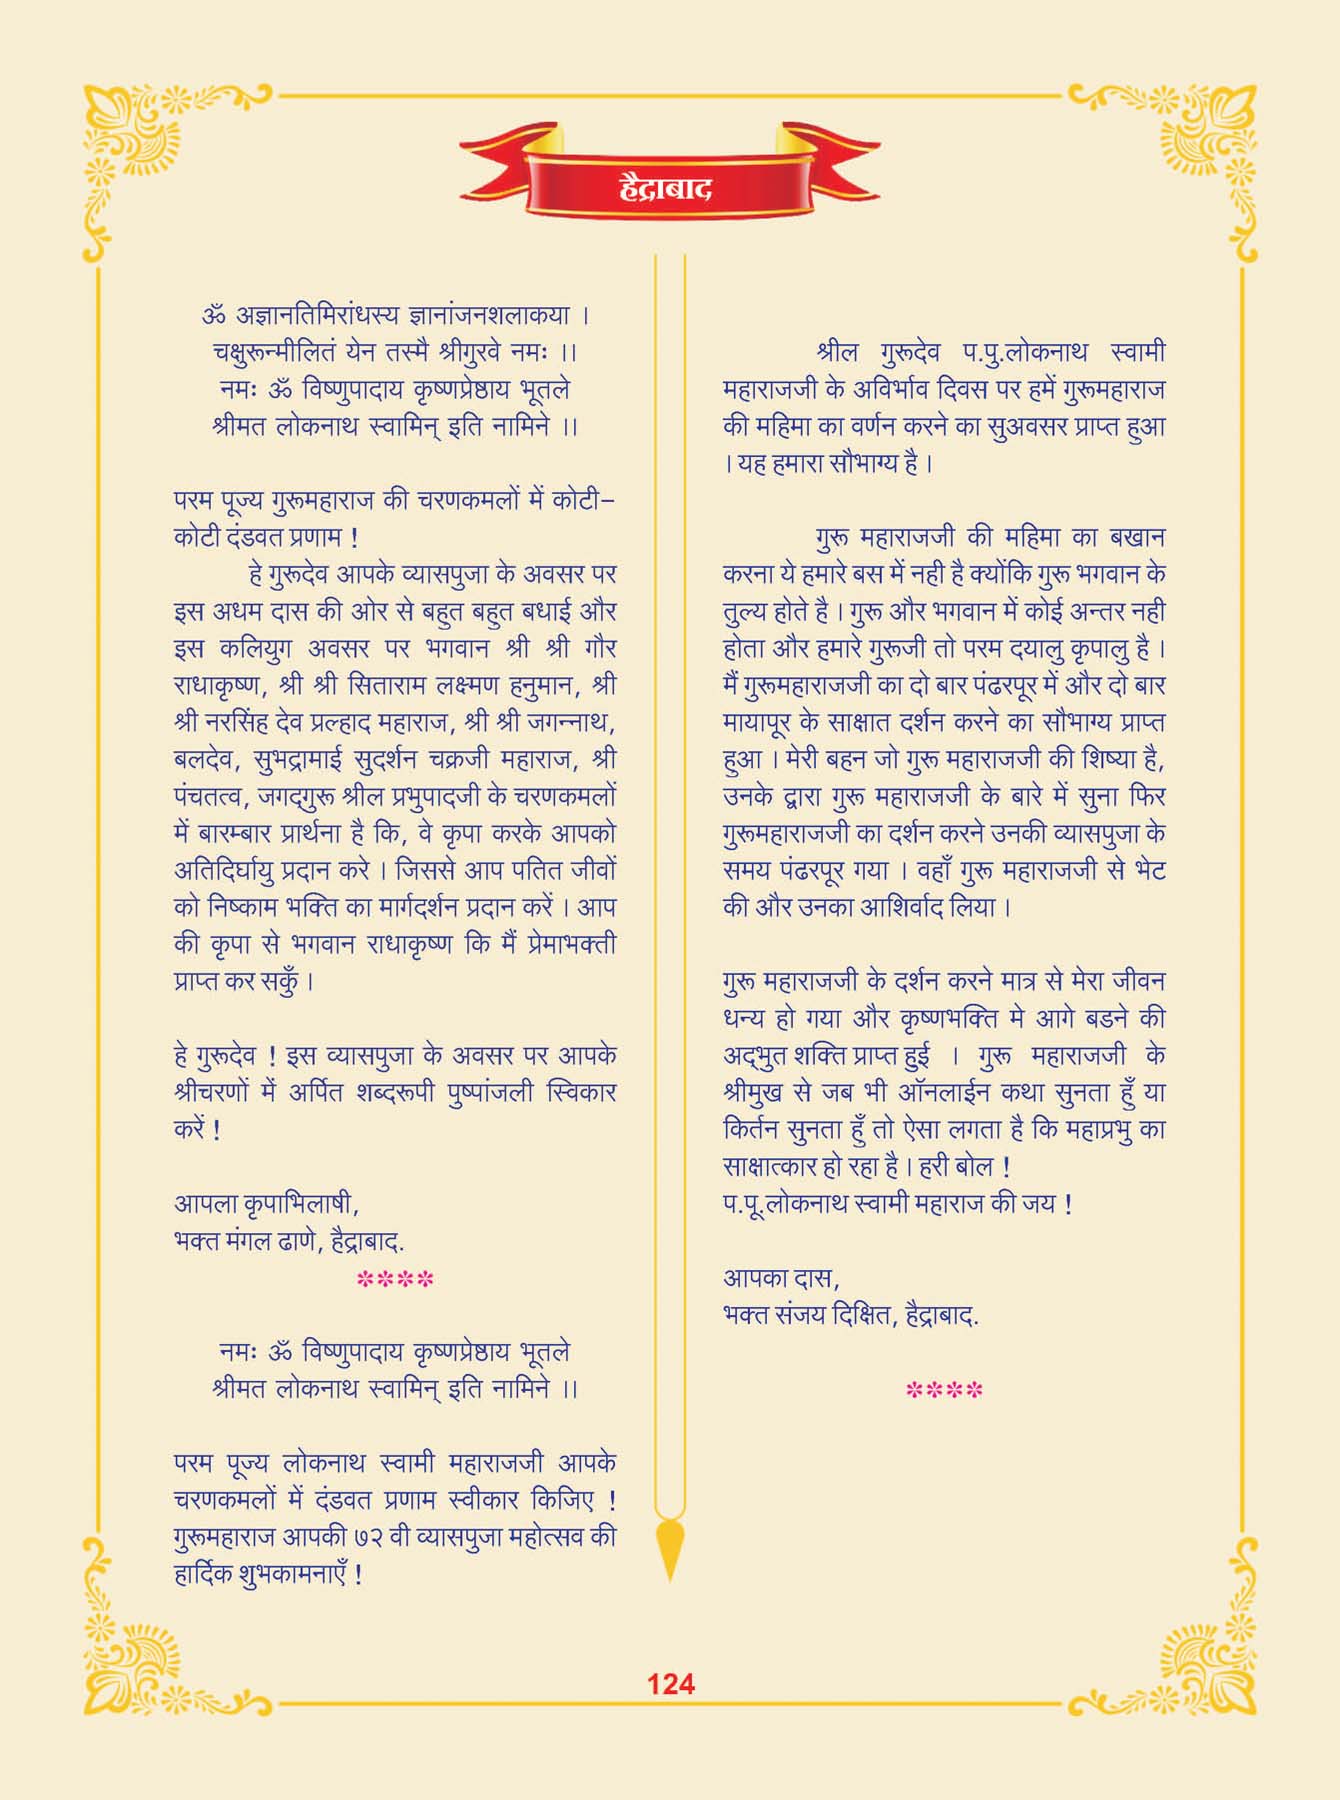 हैद्राबाद
ॐ अज्ञानतिमिरांधस्य ज्ञानांजनशलाकया ।
चक्षुरून्मीलितं येन तस्मै श्रीगुरवे नमः ।।
नमः ॐ विष्णुपादाय कृष्णप्रेष्ठाय भूतले
श्रीमत लोकनाथ स्वामिन् इति नामिने ।।
परम पूज्य गुरूमहाराज की चरणकमलों में कोटी-
कोटी दंडवत प्रणाम !
हे गुरूदेव आपके व्यासपुजा के अवसर पर
इस अधम दास की ओर से बहुत बहुत बधाई और
इस कलियुग अवसर पर भगवान श्री श्री गौर
राधाकृष्ण, श्री श्री सिताराम लक्ष्मण हनुमान, श्री
श्री नरसिंह देव प्रल्हाद महाराज, श्री श्री जगन्नाथ,
बलदेव, सुभद्रामाई सुदर्शन चक्रजी महाराज, श्री
पंचतत्व, जगद्‌गुरू श्रील प्रभुपादजी के चरणकमलों
में बारम्बार प्रार्थना है कि, वे कृपा करके आपको
अतिदिर्घायु प्रदान करे । जिससे आप पतित जीवों
को निष्काम भक्ति का मार्गदर्शन प्रदान करें । आप
की कृपा से भगवान राधाकृष्ण कि मैं प्रेमाभक्ती
प्राप्त कर सकुँ ।
हे गुरूदेव ! इस व्यासपुजा के अवसर पर आपके
श्रीचरणों में अर्पित शब्दरूपी पुष्पांजली स्विकार
करें !
आपला कृपाभिलाषी,
भक्त मंगल ढाणे, हैद्राबाद.
****
नमः ॐ विष्णुपादाय कृष्णप्रेष्ठाय भूतले
श्रीमत लोकनाथ स्वामिन् इति नामिने ।।
परम पूज्य लोकनाथ स्वामी महाराजजी आपके
चरणकमलों में दंडवत प्रणाम स्वीकार किजिए !
गुरूमहाराज आपकी ७२ वी व्यासपुजा महोत्सव की
हार्दिक शुभकामनाएँ !
श्रील गुरूदेव प.पु.लोकनाथ स्वामी
महाराजजी के अविर्भाव दिवस पर हमें गुरूमहाराज
की महिमा का वर्णन करने का सुअवसर प्राप्त हुआ
। यह हमारा सौभाग्य है ।
गुरू महाराजजी की महिमा का बखान
करना ये हमारे बस में नही है क्योंकि गुरू भगवान के
तुल्य होते है । गुरू और भगवान में कोई अन्तर नही
होता और हमारे गुरूजी तो परम दयालु कृपालु है ।
मैं गुरूमहाराजजी का दो बार पंढरपूर में और दो बार
मायापूर के साक्षात दर्शन करने का सौभाग्य प्राप्त
हुआ । मेरी बहन जो गुरू महाराजजी की शिष्या है,
उनके द्वारा गुरू महाराजजी के बारे में सुना फिर
गुरूमहाराजजी का दर्शन करने उनकी व्यासपुजा के
समय पंढरपूर गया । वहाँ गुरू महाराजजी से भेट
की और उनका आशिर्वाद लिया ।
गुरू महाराजजी के दर्शन करने मात्र से मेरा जीवन
धन्य हो गया और कृष्णभक्ति मे आगे बडने की
अद्‌भुत शक्ति प्राप्त हुई । गुरू महाराजजी के
श्रीमुख से जब भी ऑनलाईन कथा सुनता हुँ या
किर्तन सुनता हुँ तो ऐसा लगता है कि महाप्रभु का
साक्षात्कार हो रहा है । हरी बोल !
प.पू.लोकनाथ स्वामी महाराज की जय !
आपका दास,
भक्त संजय दिक्षित, हैद्राबाद.
****
124